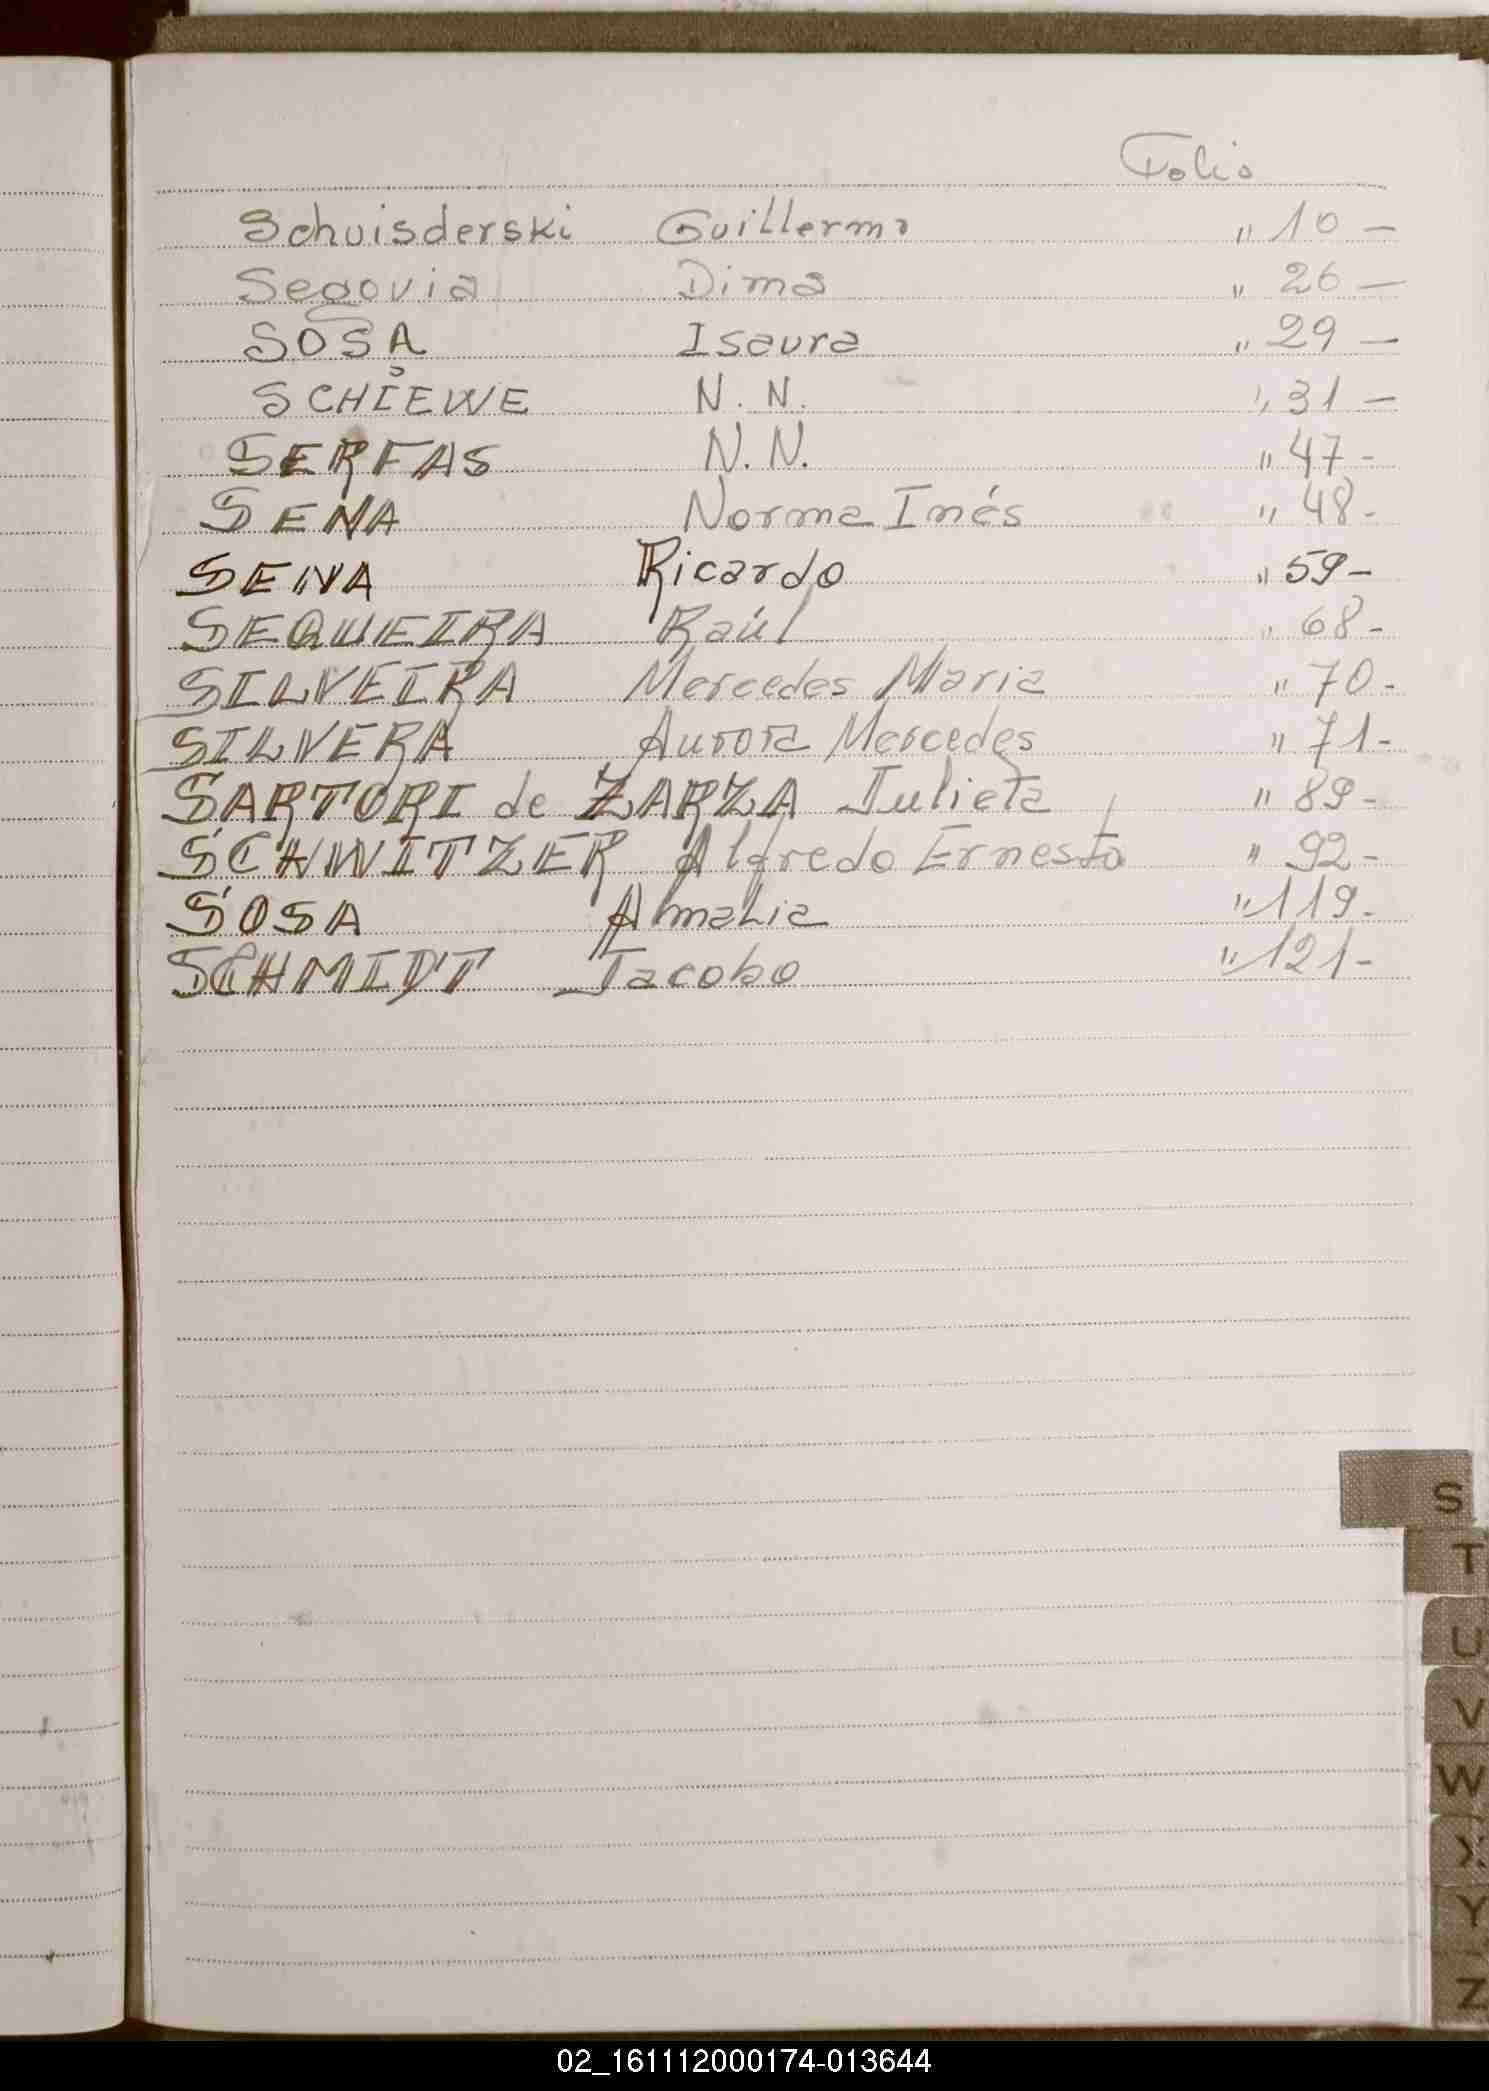 Folio
Schuisderski Guillermo " 10 -
Segovia Dima " 26 -
SOSA Isaura " 29 -
SCHIEWE N. N. " 31 -
SERFAS N. N. " 47 -
SENA Norma Inés " 48 -
SENA Ricardo " 59 -
SEQUEIRA Raúl " 68 -
SILVEIRA Mercedes Maria " 70 -
SILVERA Aurora Mercedes " 71 -
SARTORI de ZARZA Julieta " 89 -
SCHWITZER Alfredo Ernesto " 92 -
SOSA Amalia " 119 -
SCHMIDT Jacobo " 121 -
S
T
U
V
W
X
Y
Z
02_161112000174-013644